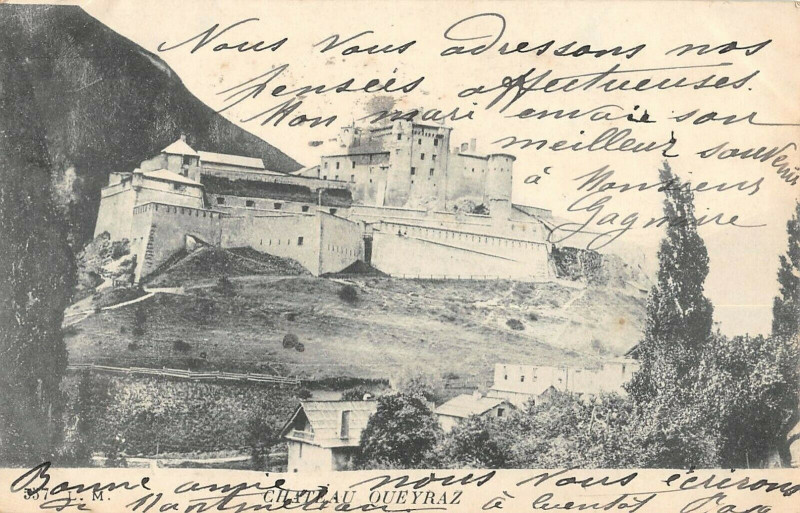 Nous Vous adressons nos
Pensées affectueuses.
Mon mari envoie son
meilleur souvenir
à Monsieur
Gagnaire
Bonne année nous vous écrirons
557 L. M. CHATEAU QUEYRAZ
à bientôt